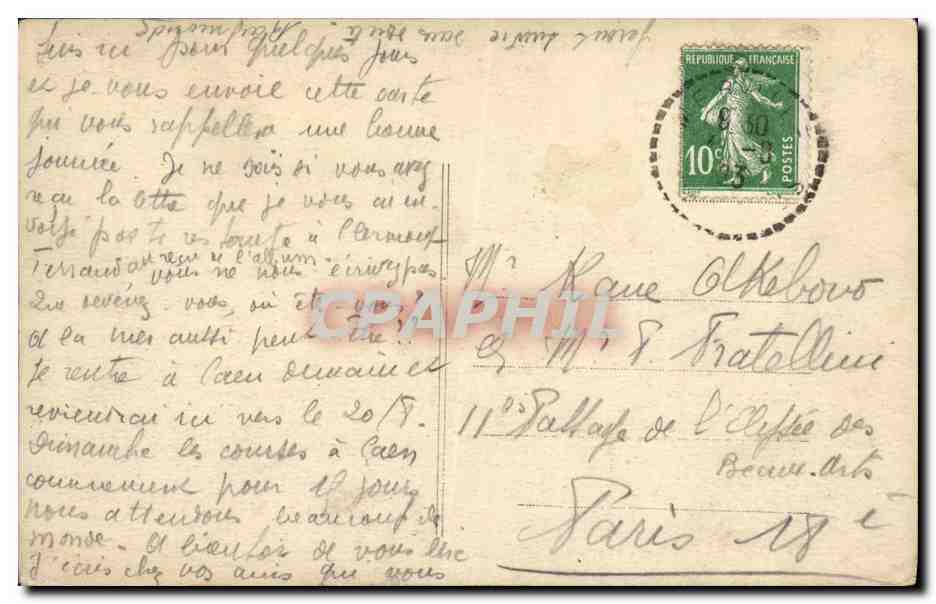 Suis ici pour quelques jours
et je vous envoie cette carte
qui vous rappellera une bonne
journée. Je ne sais si vous avez
reçu la lettre que je vous ai en-
voyée poste restante à Clermont
Ferrand
vous ne nous écrivez pas
vous, où êtes vous?
à la mer aussi peut être!!
Je rentre à Caen demain et
reviendrai ici vers le 20/8.
Dimanche les courses à Caen
commencent pour 18 jours
nous attendons beaucoup de
monde. A bientôt de vous lire
J'écris chez vos amis que vous
RÉPUBLIQUE FRANÇAISE
10c
POSTES
9 30
Mr Kane Okebovo
Mr P. Fratellini
11 Passage de l'Elysée des
Beaux-Arts
Paris 18e
CPAPHIL